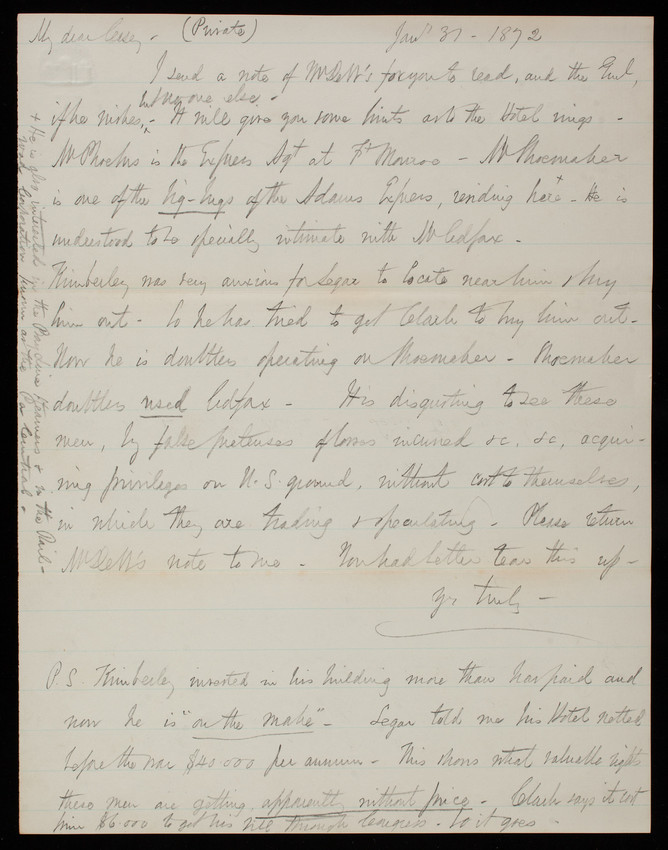 My dear Casey - (Private) Jany 31 - 1872
I send a note of McDeW's for you to read, and the Genl,
if he wishes, - but no one else. - It will give you some hints as to the Hotel rings -
Mr Phoebus is the Express Agt at Ft Monroe - Mr Shoemaker
is one of the big-bugs of the Adams Express, residing here+ - He is
understood to be specially intimate with Mr Colfax -
Kimberley was very anxious for Segar to locate near him & buy
him out - So he has tried to get Clark to buy him out -
Now he is doubtless operating on Shoemaker - Shoemaker
doubtless used Colfax - It is disgusting to see these
men, by false pretenses of losses incurred &c, &c, acqui-
ring privileges on U.S. ground, without cost to themselves,
in which they are trading & speculating - Please return
McDeW's note to me - You had better tear this up -
Yrs truly -
P.S. Kimberley invested in his building more than has paid and
now he is "on the make" - Segar told me his Hotel netted
before the war $40 000 per annum - This shows what valuable rights
these men are getting, apparently without price - Clark says it cost
him $6.000 to get his bill through Congress - So it goes -
+ He is also interested in the steamers & in the Rail-
road Corporation known as the Pa Central -